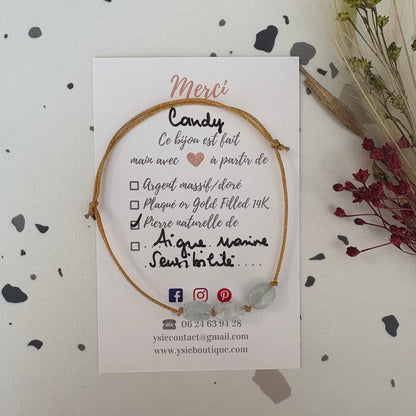 Merci
Candy
Ce bijou est fait
main avec à partir de
Argent massif/doré
Plaqué or Gold Filled 14K
Pierre naturelle de
Aigue marine
Sensibilité
06 24 63 94 28
ysiecontact@gmail.com
www.ysieboutique.com
merci